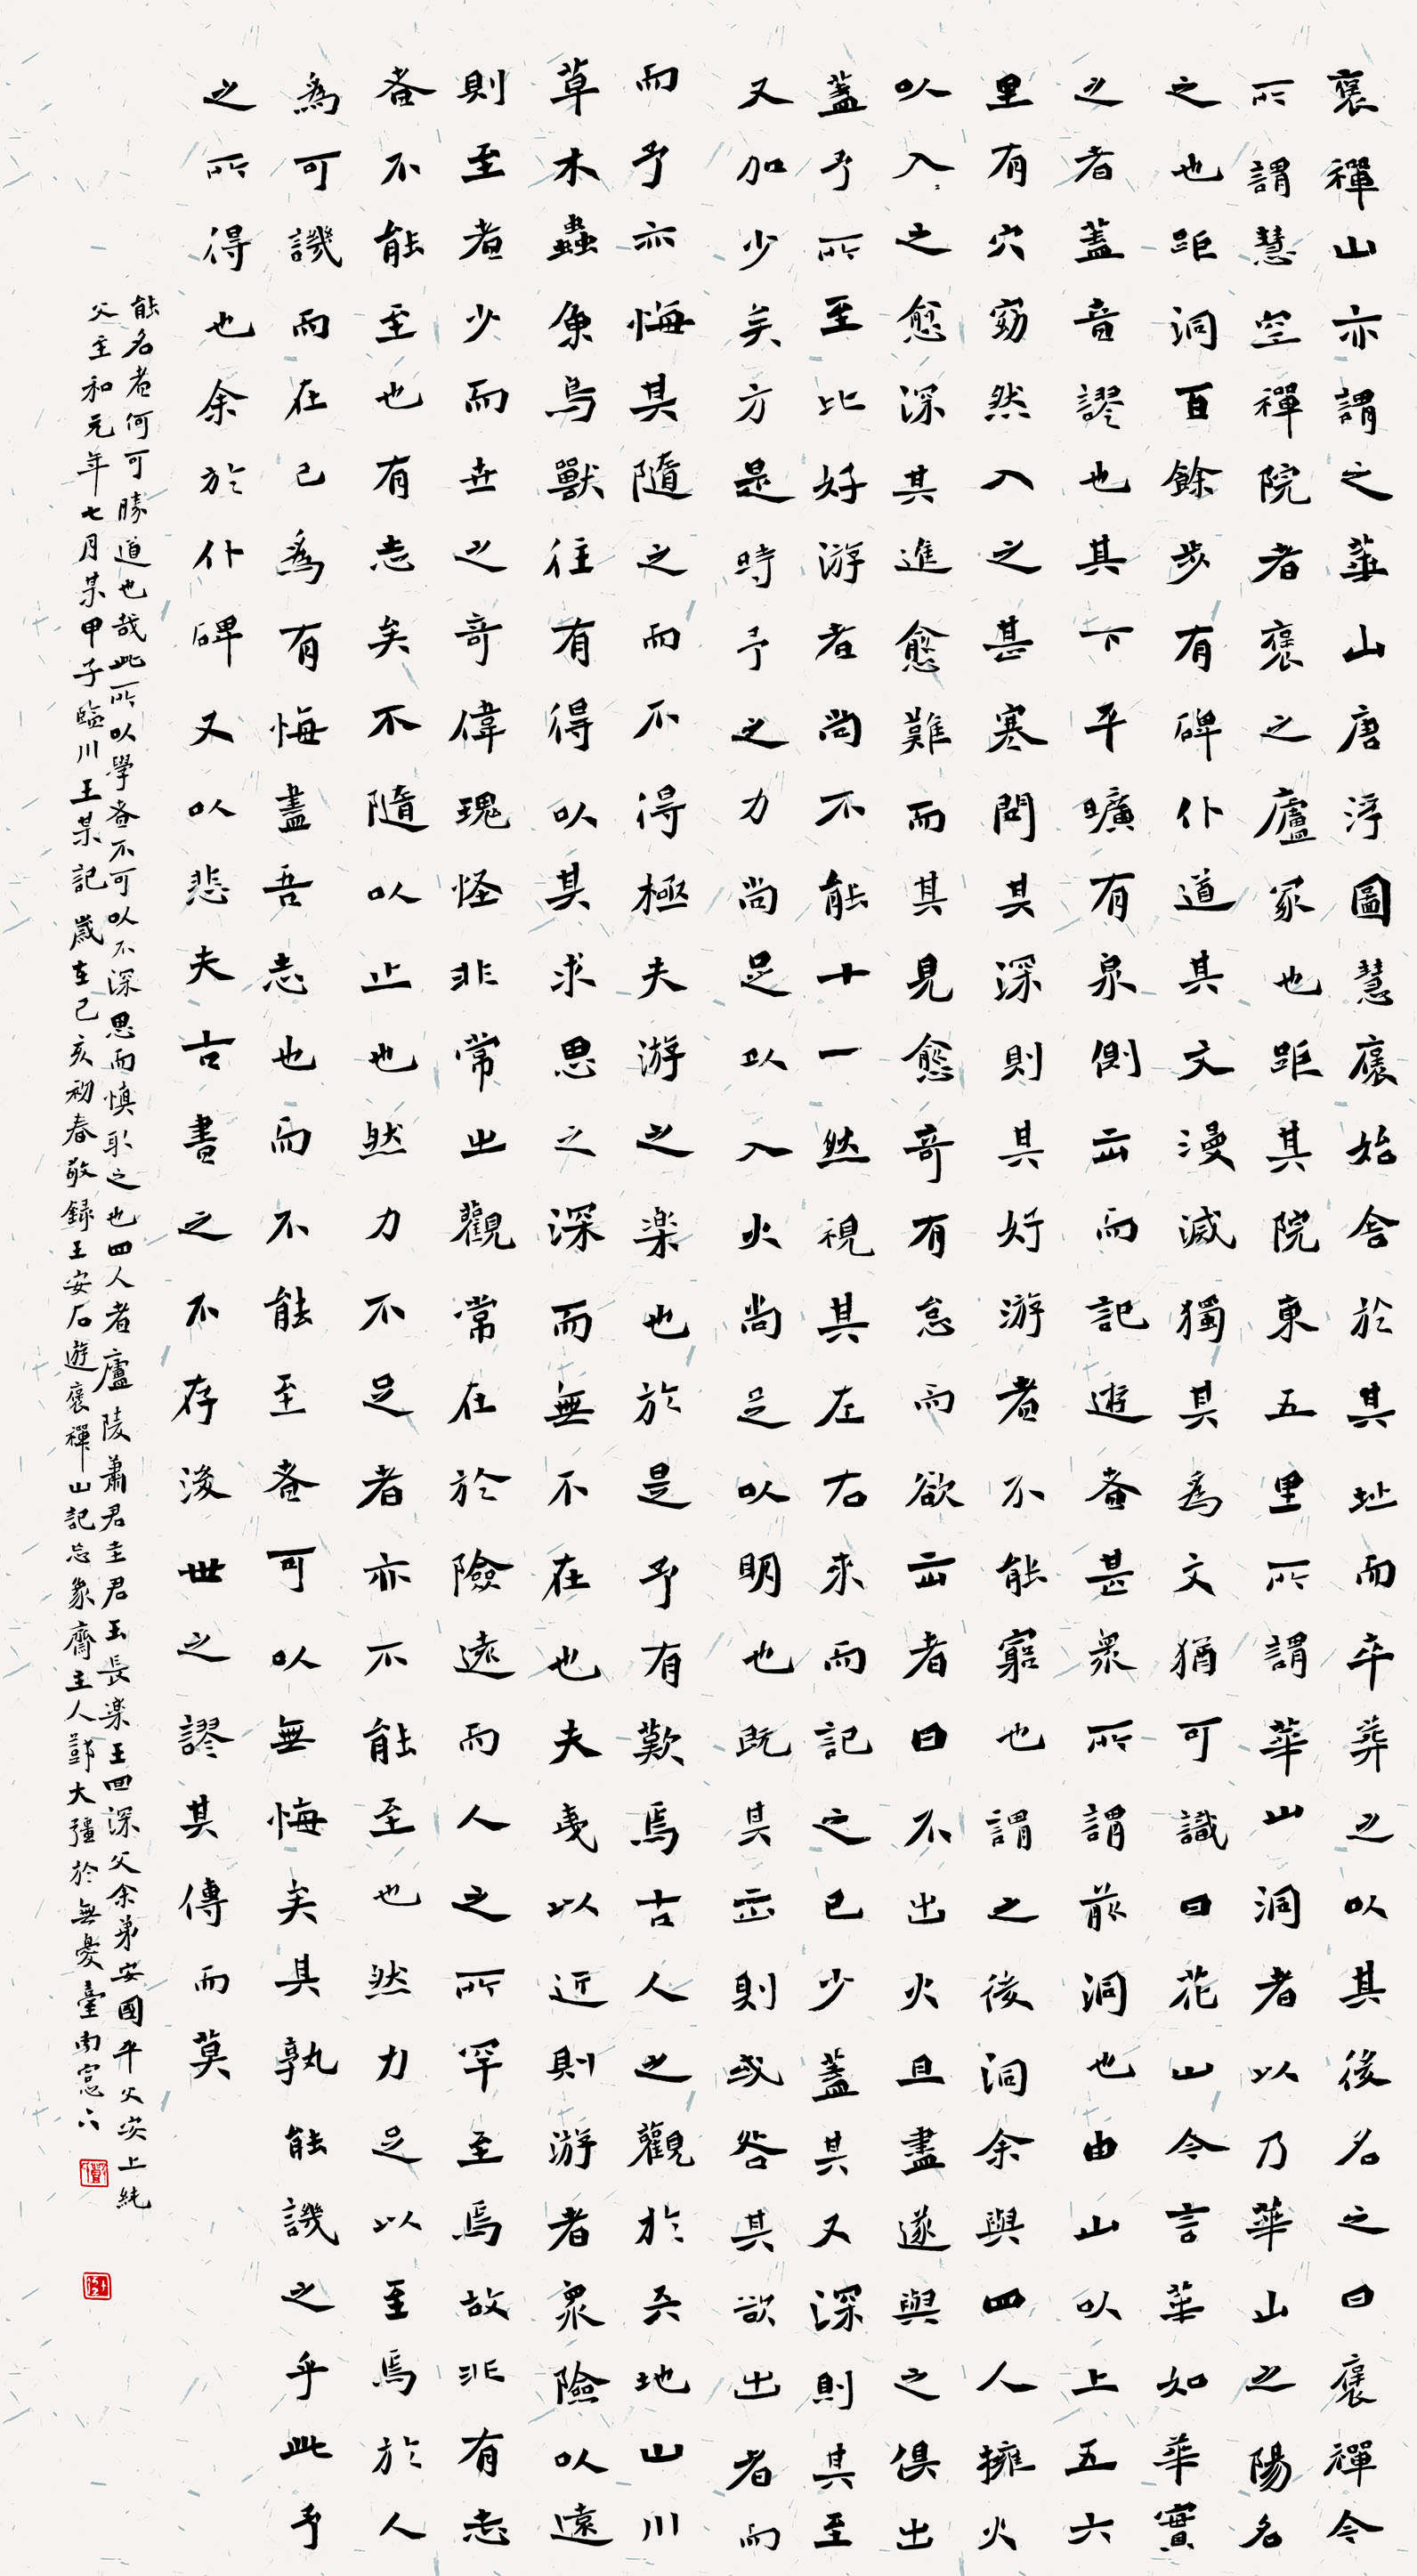 褒禪山亦謂之華山唐浮圖慧褒始舍於其址而卒葬之以其後名之曰褒禪今
所謂慧空禪院者褒之廬冢也距其院東五里所謂華山洞者以乃華山之陽名
之也距洞百餘步有碑仆道其文漫滅獨其為文猶可識曰花山今言華如華實
之者蓋音謬也其下平曠有泉側出而記遊者甚眾所謂前洞也由山以上五六
里有穴窈然入之甚寒問其深則其好游者不能窮也謂之後洞余與四人擁火
以入〻之愈深其進愈難而其見愈奇有怠而欲出者曰不出火且盡遂與之俱出
蓋予所至比好游者尚不能十一然視其左右來而記之已少蓋其又深則其至
又加少矣方是時予之力尚足以入火尚足以明也既其出則或咎其欲出者而
而予亦悔其隨之而不得極夫游之楽也於是予有歎焉古人之觀於天地山川
草木蟲魚鳥獸往有得以其求思之深而無不在也夫夷以近則游者眾險以遠
則至者少而世之奇偉瑰怪非常之觀常在於險遠而人之所罕至焉故非有志
者不能至也有志矣不隨以止也然力不足者亦不能至也然力足以至焉於人
為可譏而在己為有悔盡吾志也而不能至者可以無悔矣其孰能譏之乎此予
之所得也余於仆碑又以悲夫古書之不存後世之謬其傳而莫
能名者何可勝道也哉此所以學者不可以不深思而慎取之也四人者廬陵蕭君圭君玉長楽王回深父余弟安國平父安上純
父至和元年七月某甲子臨川王某記 歲在己亥初春敬録王安石遊褒禪山記忘象齋主人鄧大彊於無憂臺南窓下